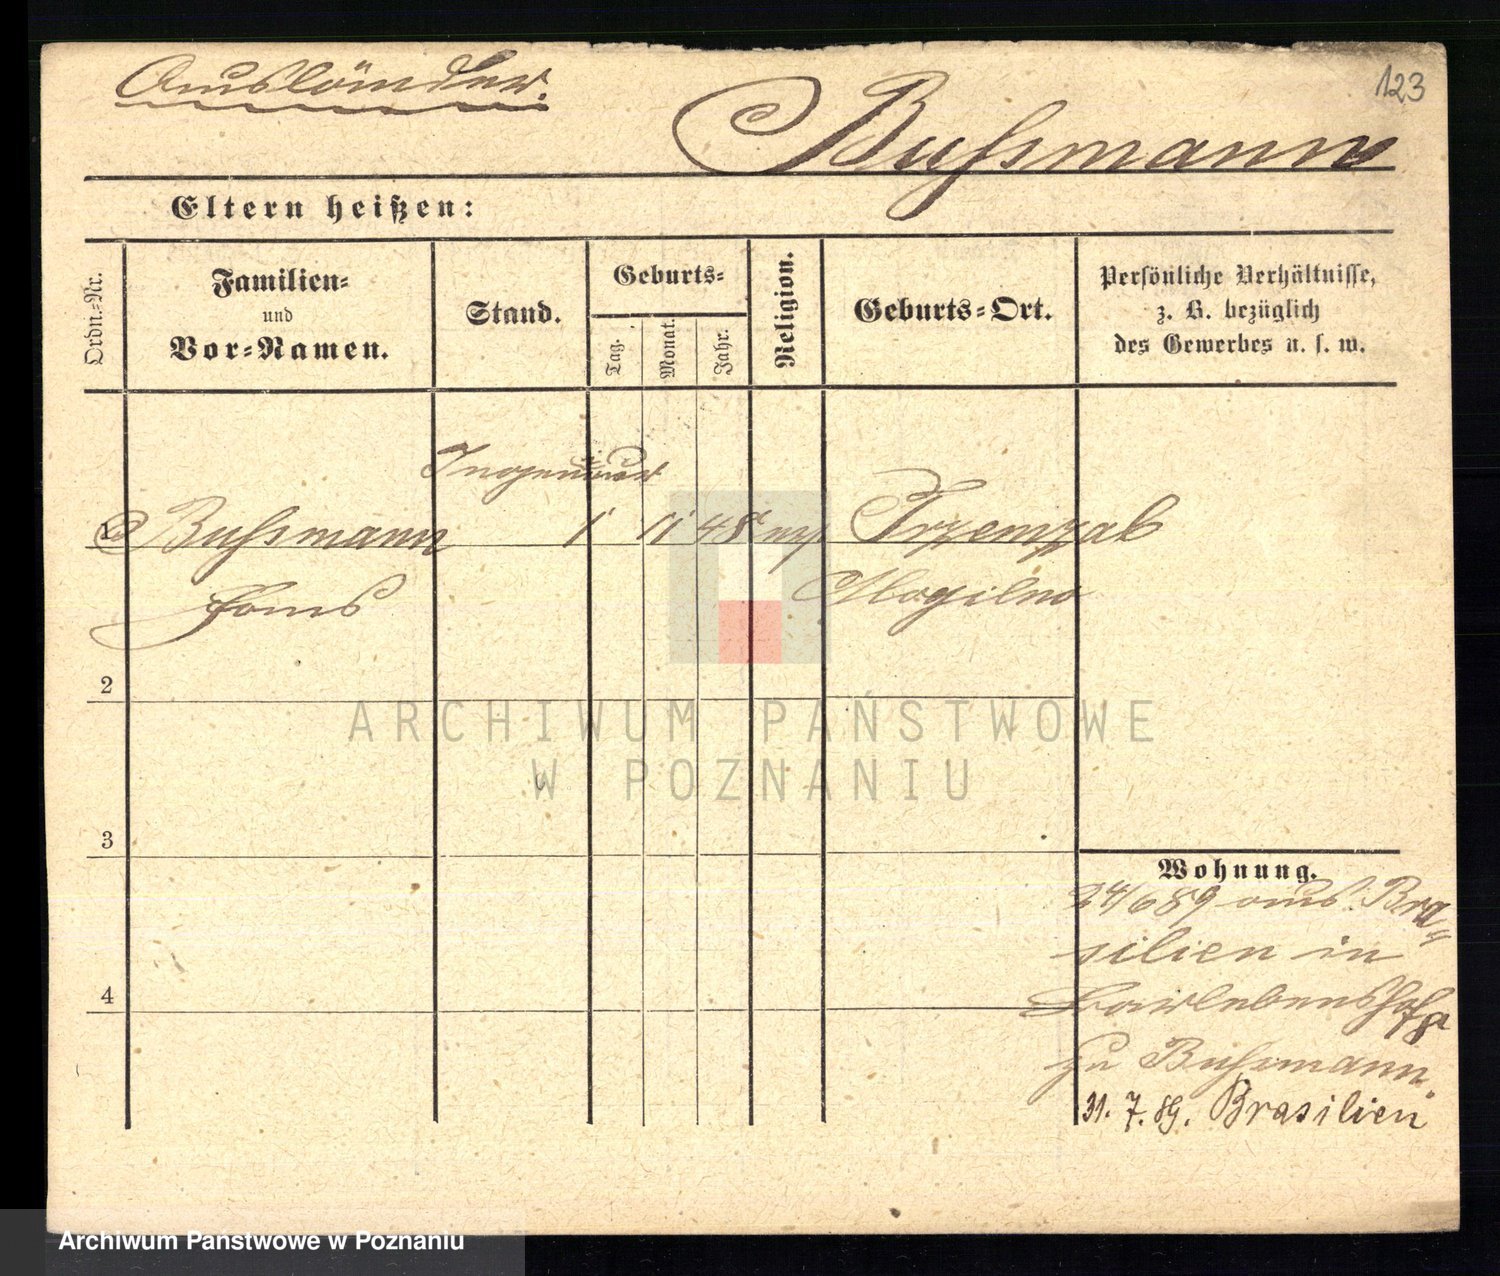 Ausländer.
123
Bußmann
Eltern heißen:
Ordn.-Nr.
Familien-
und
Vor-Namen.
Stand.
Geburts-
Tag.
Monat.
Jahr.
Religion.
Geburts-Ort.
Persönliche Verhältnisse,
z. B. bezüglich
des Gewerbes u. s. w.
Ingenieur
1 Bußmann 1 11 48 Trzemzal
Mogilno
2
3
4
Wohnung.
24/6 89 aus Bra-
silien in
zu Bußmann.
31. 7. 89. Brasilien
ARCHIWUM PAŃSTWOWE
W POZNANIU
Archiwum Państwowe w Poznaniu